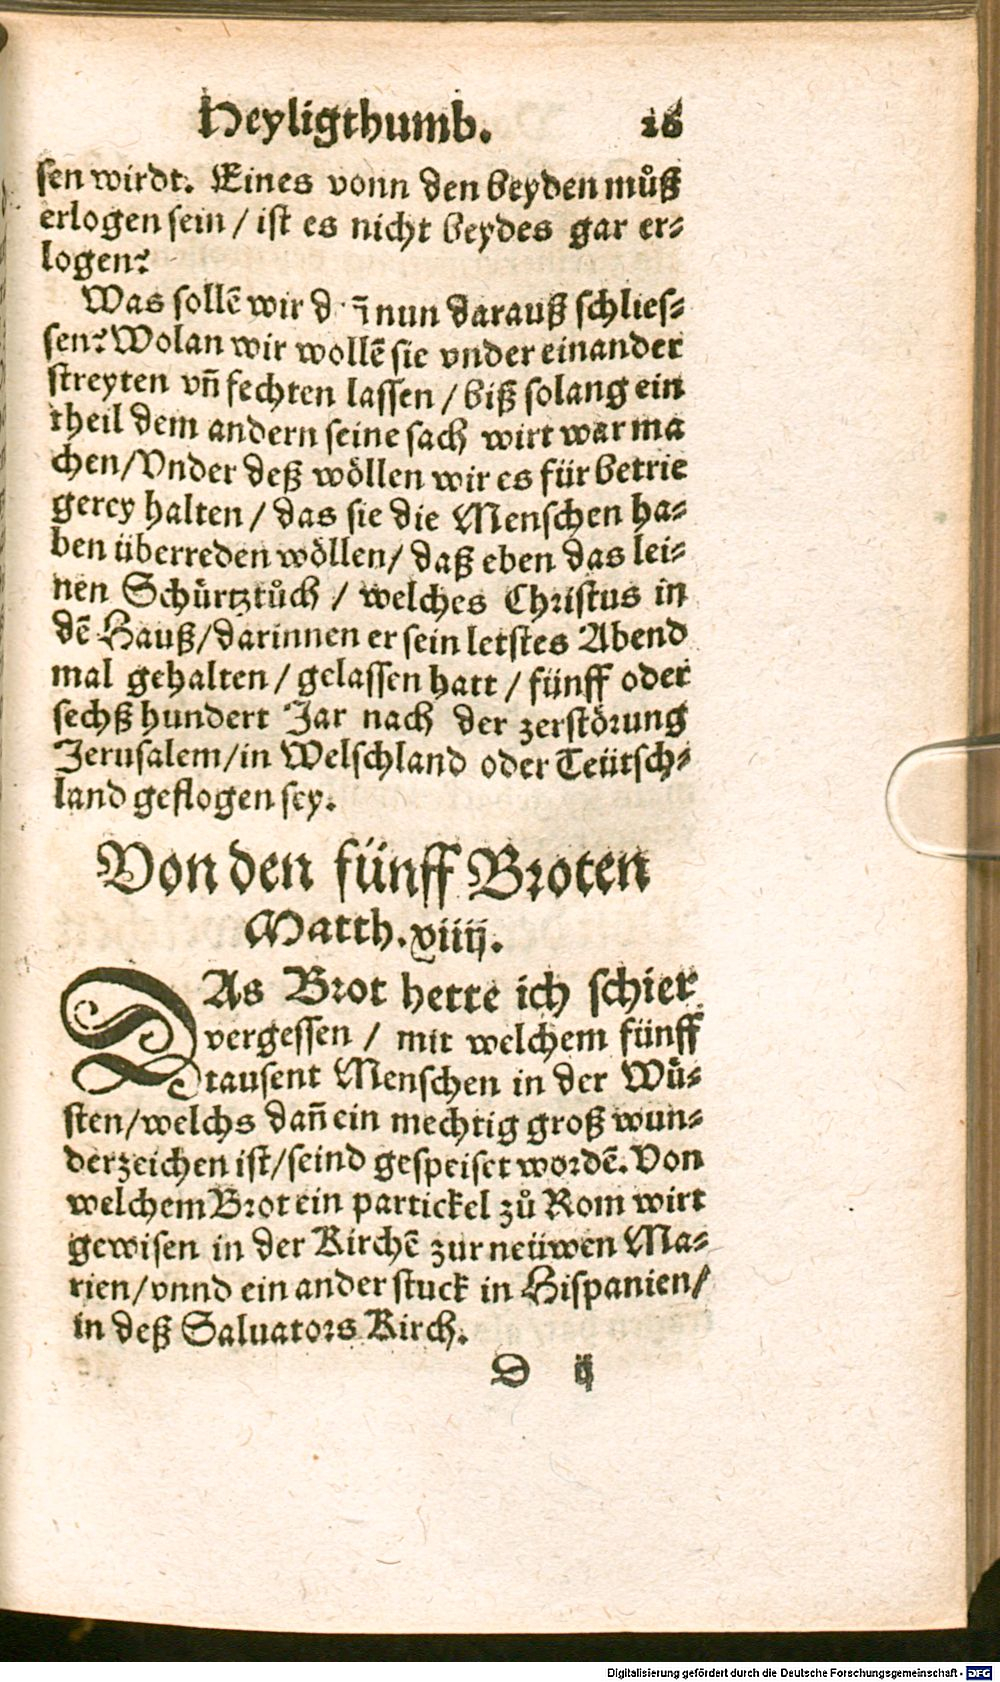 Heyligthumb. 26
sen wirdt. Eines vonn den beyden můß
erlogen sein / ist es nicht beydes gar er⸗
logen?
Was sollē wir nun darauß schlies⸗
sen? Wolan wir wollē sie vnder einander
streyten vn̄ fechten lassen / biß solang ein
theil dem andern seine sach wirt war ma
chen/Vnder deß wöllen wir es für betrie
gerey halten / das sie die Menschen ha⸗
ben überreden wöllen/ daß eben das lei⸗
nen Schürtztůch / welches Christus in
dē Hauß/darinnen er sein letstes Abend
mal gehalten / gelassen hatt / fünff oder
sechß hundert Jar nach der zerstörung
Jerusalem/in Welschland oder Teütsch⸗
land geflogen sey.
Von den fünff Broten
Matth. xiiij.
DAs Brot hette ich schier
vergessen / mit welchem fünff
tausent Menschen in der Wü⸗
sten/welchs dan̄ ein mechtig groß wun⸗
derzeichen ist/seind gespeiset wordē. Von
welchem Brot ein partickel zů Rom wirt
gewisen in der Kirchē zur neüwen Ma⸗
rien/vnnd ein ander stuck in Hispanien/
in deß Saluators Kirch.
D ij
Digitalisierung gefördert durch die Deutsche Forschungsgemeinschaft - DFG